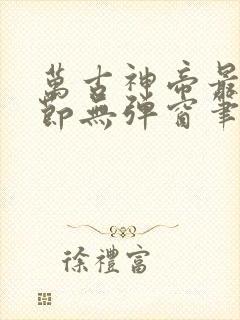 萬古神帝最
節無彈窗筆
徐禮富